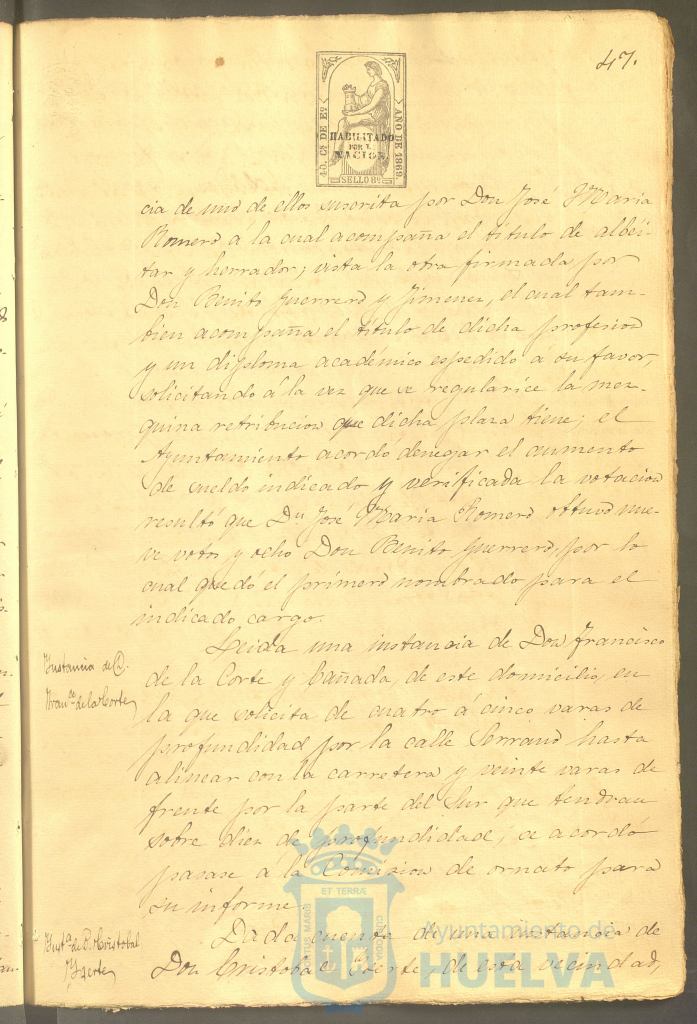 47.
40. Cs DE Eo
AÑO DE 1869.
HABILITADO
POR LA
NACION.
SELLO 8º
cia de uno de ellos suscrita por Don José Maria
Romero a la cual acompaña el titulo de albéi-
tar y herrador; vista la otra firmada por
Don Benito Guerrero y Jimenez, el cual tam-
bien acompaña el titulo de dicha profesion
y un diploma academico espedido a su favor,
solicitando á la vez que se regularice la mez-
quina retribucion que dicha plaza tiene; el
Ayuntamiento acordó denegar el aumento
de sueldo indicado y verificada la votacion
resultó que Dn José Maria Romero obtuvo nue-
ve votos y ocho Don Benito Guerrero, por lo
cual quedó el primero nombrado para el
indicado cargo.
Instancia de D.
Franco de la Corte
Leida una instancia de Don Francisco
de la Corte y Cañada, de este domicilio, en
la que solicita de cuatro á cinco varas de
profundidad por la calle Serrano hasta
alinear con la carretera y veinte varas de
frente por la parte del Sur que tendran
sobre diez de profundidad; se acordó
pasase á la Comision de ornato para
su informe.
Insta de D. Cristobal
Dada cuenta de una instancia de
Don Cristobal de esta vecindad,
ET TERRÆ
PORTUS MARIS
CUSTODIA
Ayuntamiento de
HUELVA